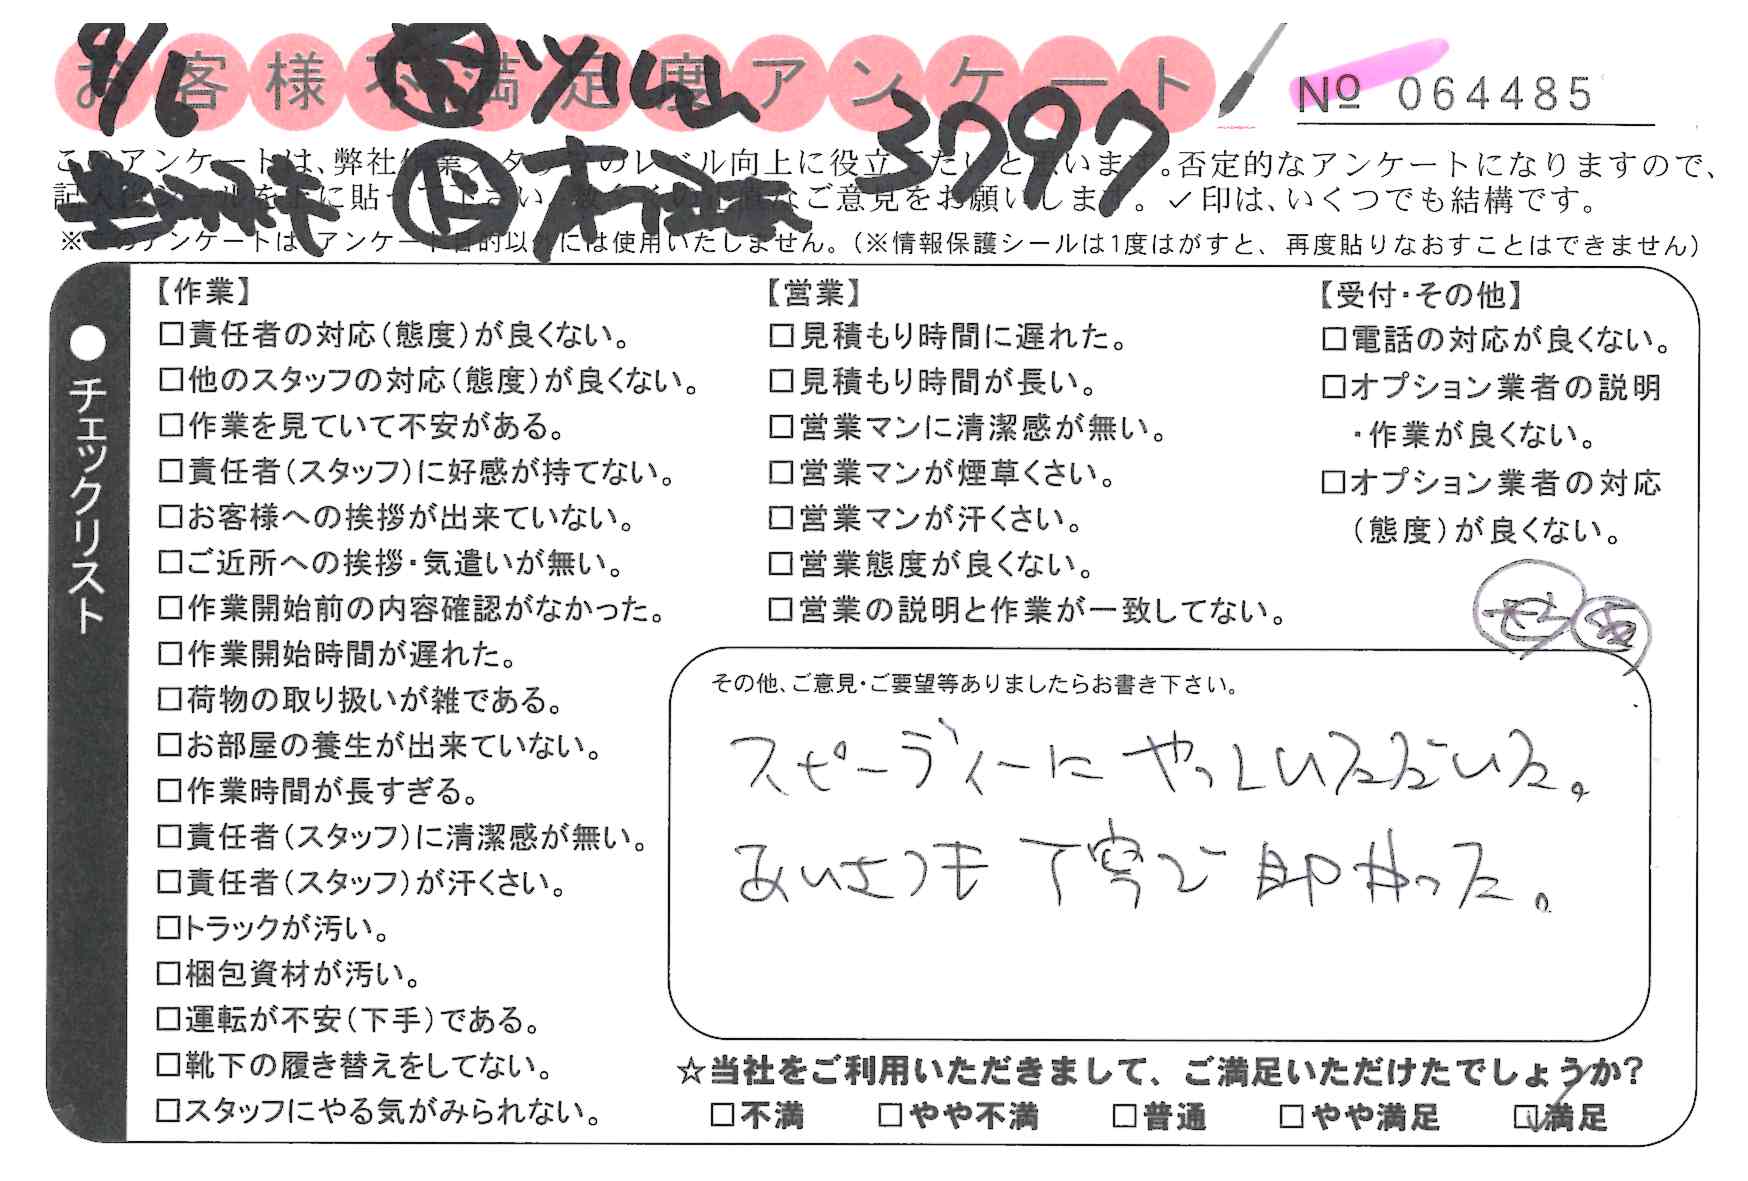 お客様不満足度アンケート
No 064485
9/6
3797
このアンケートは、弊社作業スタッフのレベル向上に役立てたいと思います。否定的なアンケートになりますので、
に貼って下さい ご意見をお願いします。✓印は、いくつでも結構です。
※このアンケートは、アンケート目的以外には使用いたしません。(※情報保護シールは1度はがすと、再度貼りなおすことはできません)
●チェックリスト
【作業】
□責任者の対応(態度)が良くない。
□他のスタッフの対応(態度)が良くない。
□作業を見ていて不安がある。
□責任者(スタッフ)に好感が持てない。
□お客様への挨拶が出来ていない。
□ご近所への挨拶・気遣いが無い。
□作業開始前の内容確認がなかった。
□作業開始時間が遅れた。
□荷物の取り扱いが雑である。
□お部屋の養生が出来ていない。
□作業時間が長すぎる。
□責任者(スタッフ)に清潔感が無い。
□責任者(スタッフ)が汗くさい。
□トラックが汚い。
□梱包資材が汚い。
□運転が不安(下手)である。
□靴下の履き替えをしてない。
□スタッフにやる気がみられない。
【営業】
□見積もり時間に遅れた。
□見積もり時間が長い。
□営業マンに清潔感が無い。
□営業マンが煙草くさい。
□営業マンが汗くさい。
□営業態度が良くない。
□営業の説明と作業が一致してない。
【受付・その他】
□電話の対応が良くない。
□オプション業者の説明
・作業が良くない。
□オプション業者の対応
(態度)が良くない。
その他、ご意見・ご要望等ありましたらお書き下さい。
スピーディーにやっていただいた。
あいさつも丁寧で助かった。
☆当社をご利用いただきまして、ご満足いただけたでしょうか?
□不満 □やや不満 □普通 □やや満足 ☑満足